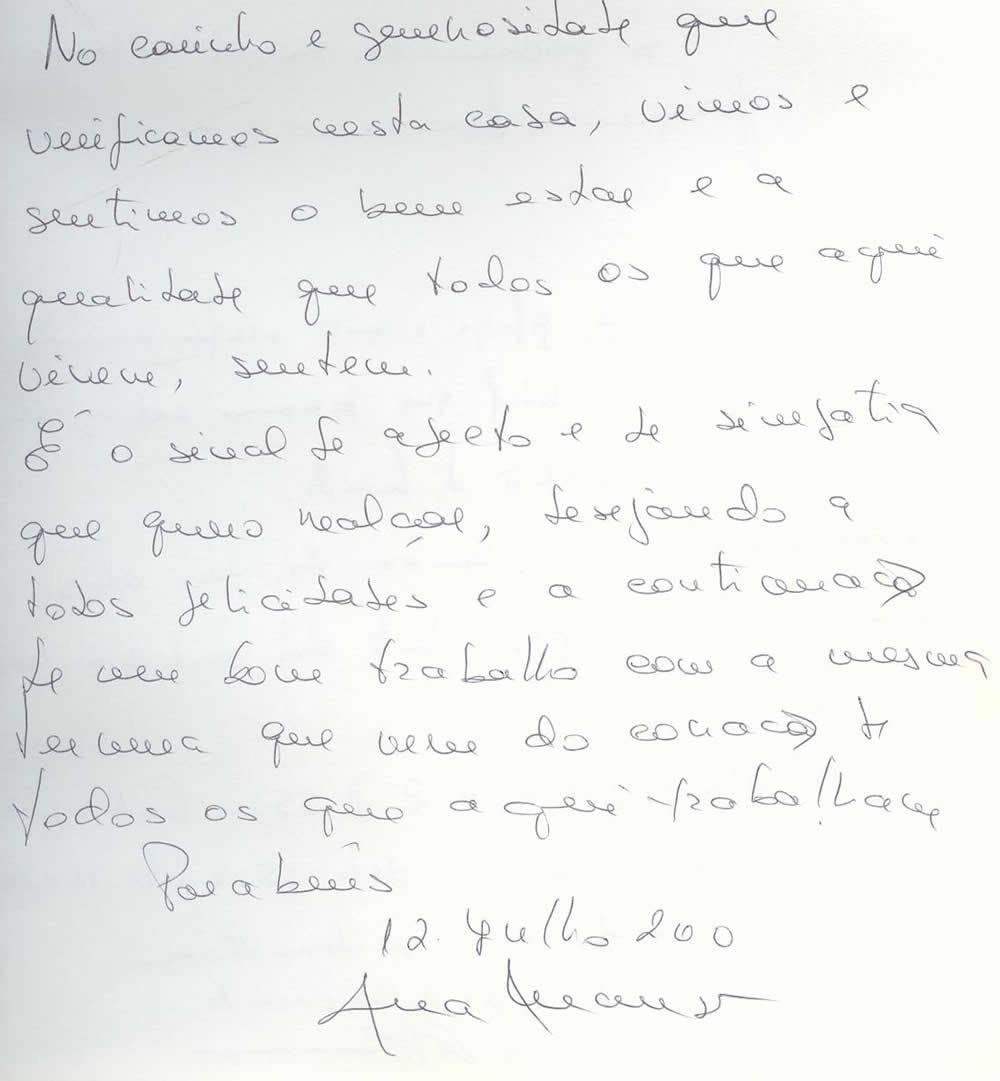 No carinho e generosidade que
verificamos nesta casa, vimos e
sentimos o bem estar e a
qualidade que todos os que aqui
vivem, sentem.
É o sinal de afecto e de simpatia
que quero realçar, desejando a
todos felicidades e a continuação
de um bom trabalho com a mesma
ternura que vem do coração de
todos os que aqui trabalham
Parabéns
12. Julho 200
Ana